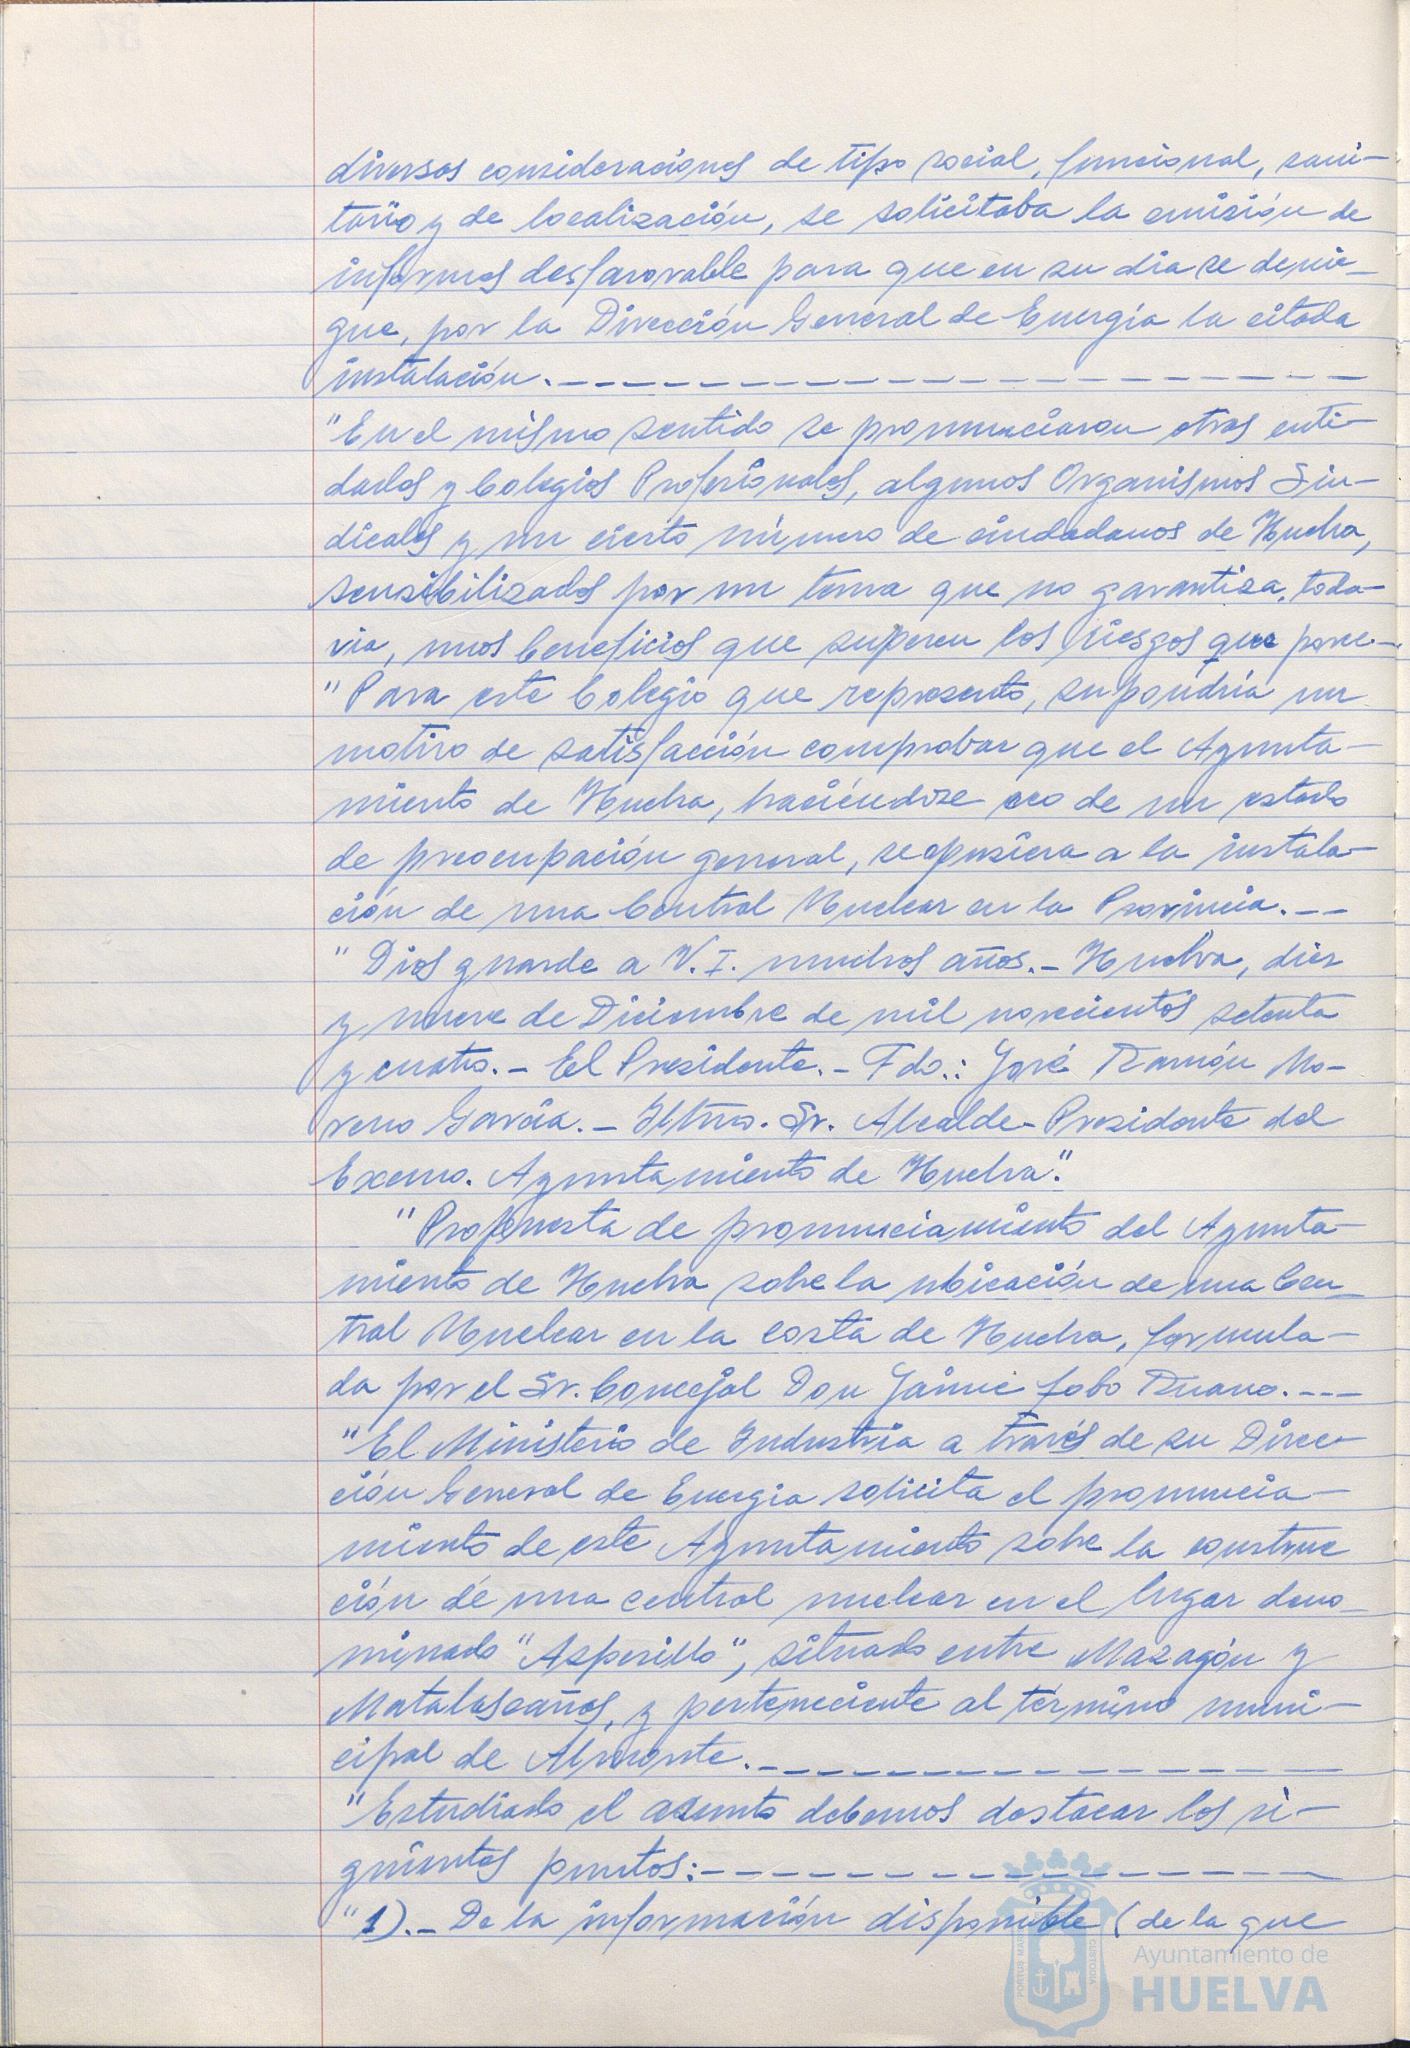 diversas consideraciones de tipo social, funcional, sani-
tario y de localización, se solicitaba la emisión de
informes desfavorable para que en su dia se denie-
gue, por la Dirección General de Energía la citada
instalación.
"En el mismo sentido se pronunciaron otras enti-
dades y Colegios Profesionales, algunos Organismos Sin-
dicales y un cierto número de ciudadanos de Huelva,
sensibilizados por un tema que no garantiza, toda-
via, unos beneficios que superen los riesgos que posee.-
"Para este Colegio que represento, supondría un
motivo de satisfacción comprobar que el Ayunta-
miento de Huelva, haciéndose eco de un estado
de preocupación general, se opusiera a la instala-
ción de una Central Nuclear en la Provincia.---
"Dios guarde a V.I. muchos años.- Huelva, diez
y nueve de Diciembre de mil novecientos setenta
y cuatro.- El Presidente.- Fdo.: José Ramón Mo-
reno García.- Iltmo. Sr. Alcalde-Presidente del
Excmo. Ayuntamiento de Huelva".
"Propuesta de pronunciamiento del Ayunta-
miento de Huelva sobre la ubicación de una Cen-
tral Nuclear en la costa de Huelva, formula-
da por el Sr. Concejal Don Jaime Lobo Ruano.---
"El Ministerio de Industria a través de su Direc-
ción General de Energia solicita el pronuncia-
miento de este Ayuntamiento sobre la construc
ción de una central nuclear en el lugar deno-
minado "Asperillo", situado entre Mazagón y
Matalascañas, y perteneciente al término muni-
cipal de Almonte.
"Estudiado el asunto debemos destacar los si-
guientes puntos:
"1).- De la información disponible (de la que
Ayuntamiento de
HUELVA